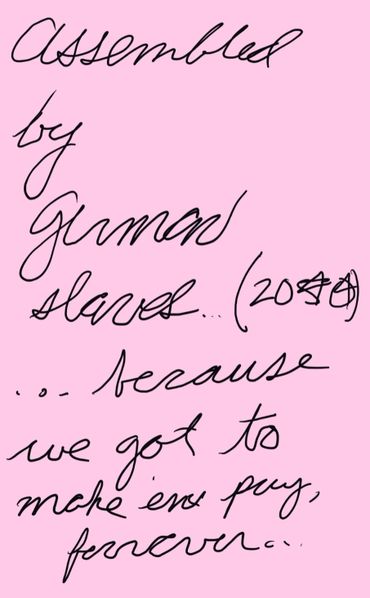 assembled
by
german
slaves... (20
... because
we got to
make 'em pay,
forever...